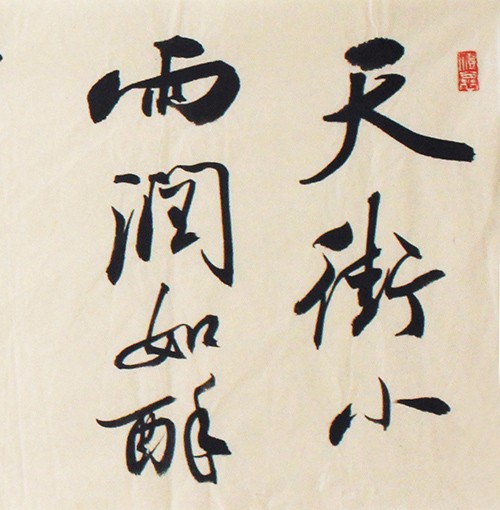 天街小
雨润如酥